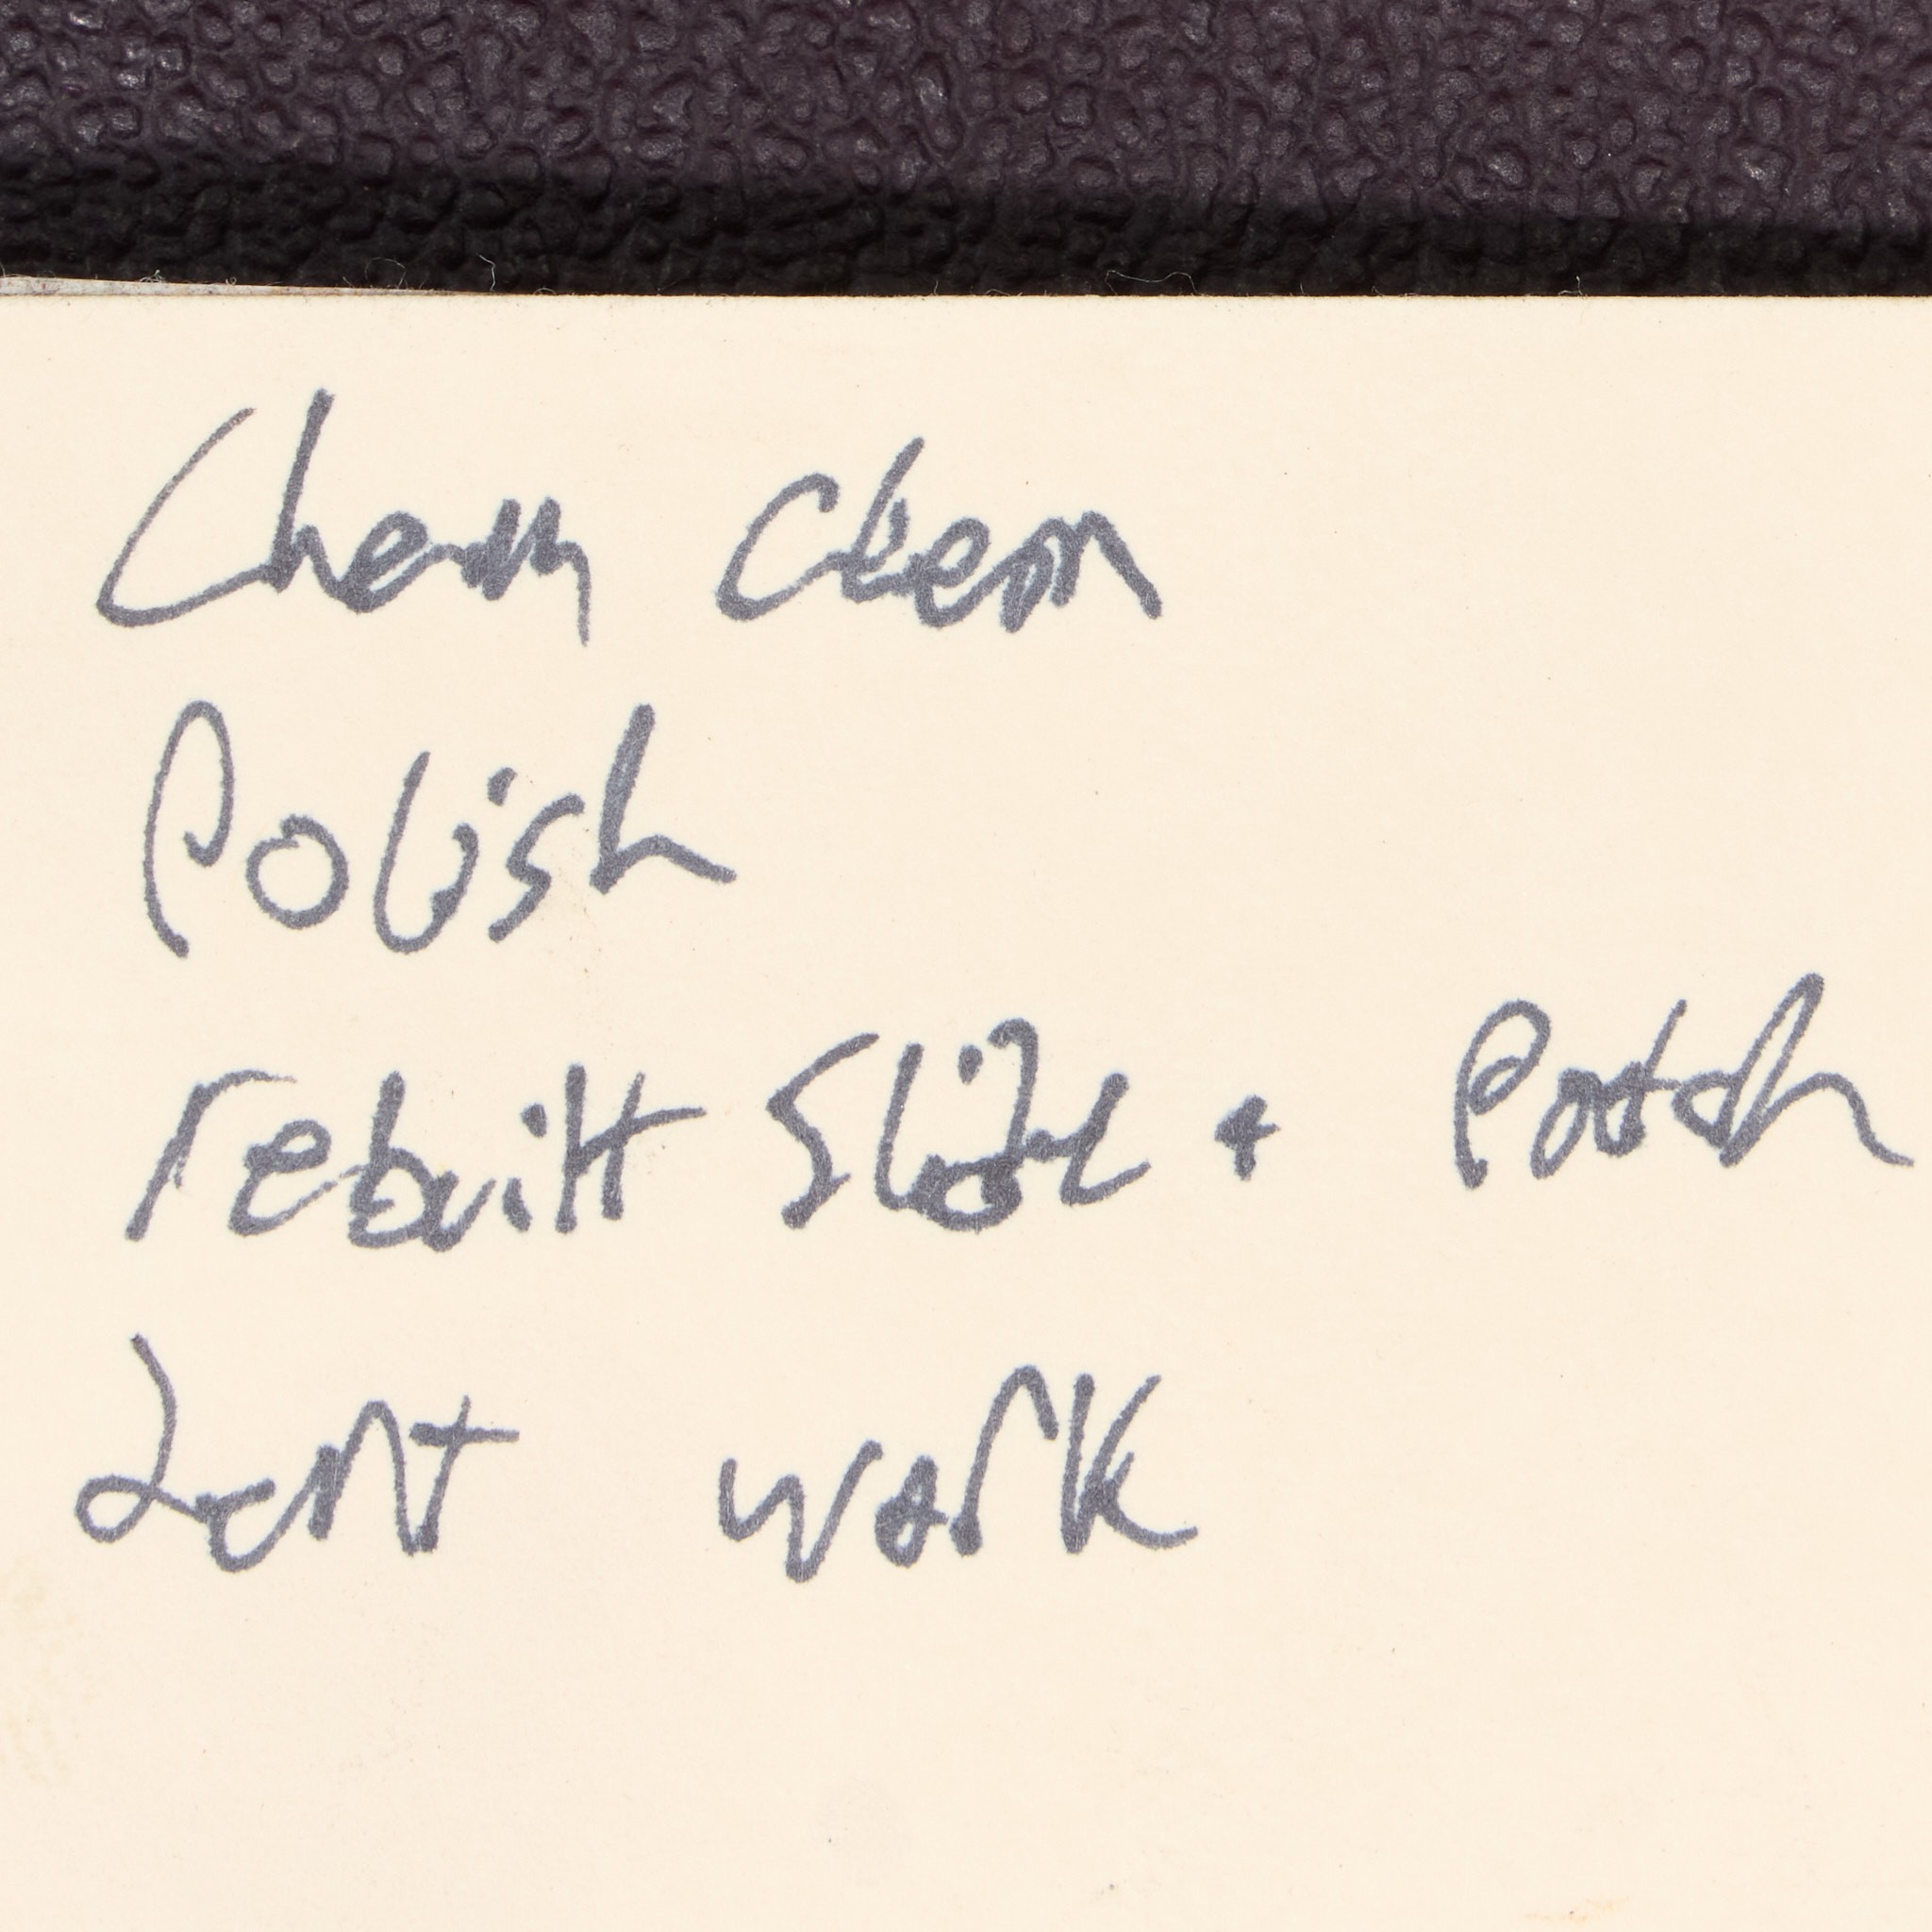 Chem Clean
Polish
rebuilt Slide + Patch
Dent work